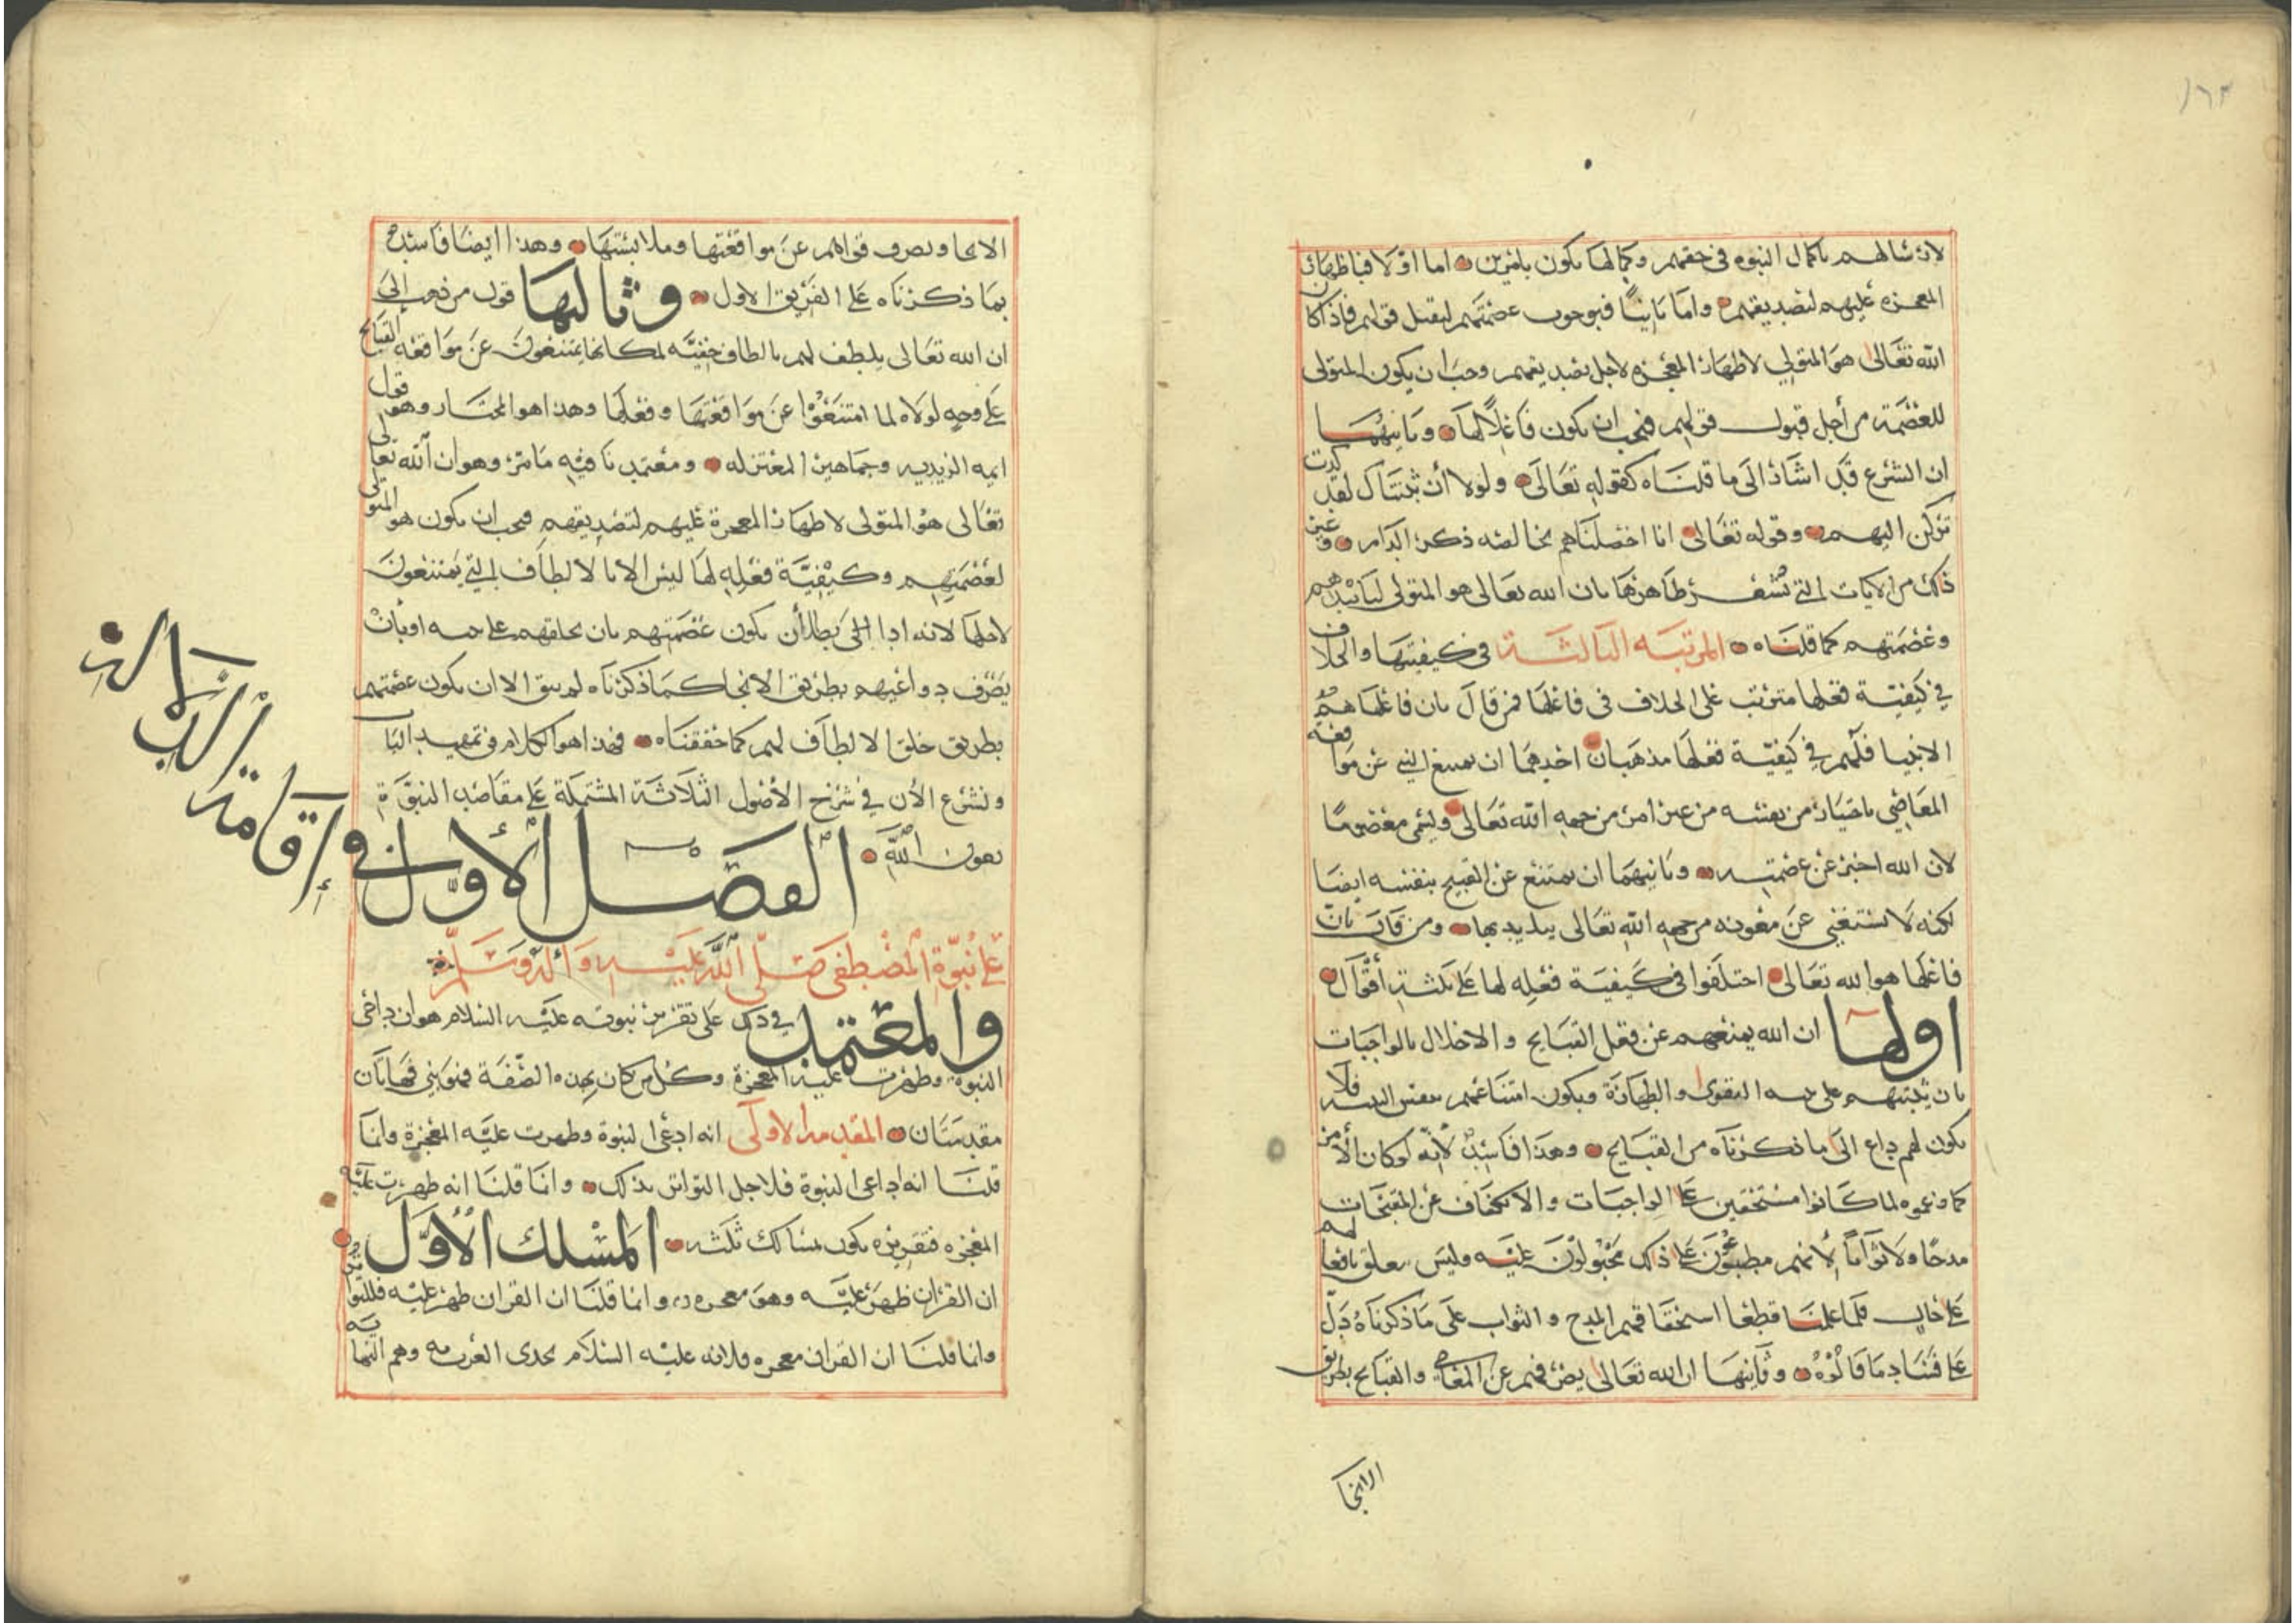 ١٦٣
لارسالهم باكمال النبوه في حقهم وكمالها يكون بامرين اما اولا فباظهار
المعجزه عليهم لتصديقهم واما ثانيًا فبوجوب عصمتهم ليقبل قولهم فاذا كان
الله تعالى هو المتولي لاظهار المعجزه لاجل تصديقهم وجب ان يكون المتولى
للعصمة من أجل قبول قولهم فيجب ان يكون فاعلًا لها وثانيهما
ان الشرع قد اشار الى ما قلناه كقوله تعالى ولولا أن ثبتناك لقد كدت
تركن اليهم وقوله تعالى انا اخلصناهم بخالصه ذكرى الدار وغير
ذلك من الايات التي تشعر ظاهرها بان الله تعالى هو المتولى لتأييدهم
وعصمتهم كما قلناه المرتبه الثالثة في كيفيتها والخلاف
في كيفية فعلها مترتب على الخلاف في فاعلها فمن قال بان فاعلها هم
الانبيا فلهم في كيفية فعلها مذهبان احدهما ان يمتنع النبي عن موافقه
المعاصي باختيار من نفسه من غير امر من جهه الله تعالى وليسمى معصومًا
لان الله اخبر عن عصمته وثانيهما ان يمتنع عن القبيح بنفسه ايضا
لكنه لا يستغني عن معونه من جهه الله تعالى يتايد بها ومن قال بان
فاعلها هو الله تعالى اختلفوا في كيفية فعله لها على ثلثة أقوال
اولها ان الله يمنعهم عن فعل القبايح والاخلال بالواجبات
بان يثبتهم على بنيه التقوى والطهارة ويكون امتناعهم بنفس البنيه فلا
يكون لهم داع الى ما ذكرناه من القبايح وهذا فاسد لأنه لو كان الأمر
كما زعموه لما كانوا مستحقين على الواجبات والانكفاف عن المقبحات
مدحًا ولا ثوابًا لأنهم مطبوعون على ذلك مجبولون عليه وليس يعلق بافعالهم
على حال فلما علمنا قطعا استحقاقهم المدح والثواب على ما ذكرناه دل
على فساد ما قالوه وثانيها ان الله تعالى يصرفهم عن المعاصي والقبايح بطريق
الالجا
الالجا وصرف قواهم عن مواقعتها وملابستها وهذا ايضا فاسد
بما ذكرناه على الفريق الاول وثالثها قول من ذهب الى
ان الله تعالى يلطف لهم بالطاف خفيّه لمكانها يمتنعون عن مواقعه القبايح
على وجه لولاه لما امتنعوا عن مواقعتها وفعلها وهذا هو المختار وهو قول
ايمه الزيديه وجماهير المعتزله ومعتمدنا فيه ما مر وهو ان الله تعالى
تعالى هو المتولى لاظهار المعجزة عليهم لتصديقهم فيجب ان يكون هو المتولى
لعصمتهم وكيفيّة فعله لها ليس الا بالالطاف التي يمتنعون
لاجلها لانه اذا بطل أن يكون عصمتهم بان يخلقهم على بنيه او بأن
يصرف دواعيهم بطريق الالجا كما ذكرناه لم يبق الا ان يكون عصمتهم
بطريق خلق الالطاف لهم كما حققناه فهذا هو الكلام في تمهيد الباب
ونشرع الأن في شرح الأصول الثلاثة المشتملة على مقاصد النبوّة
بعون الله الفصل الأول في إقامة البرهان
على نبوة المصطفى صلى الله عليه وآله وسلم
والمعتمد في ذلك على تقرير نبوته عليه السلام هو ان ادعى
النبوة وظهرت عليه المعجزة وكل من كان بهذه الصفة فهو نبي فهاتان
مقدمتان المقدمة الاولى انه ادعى النبوة وظهرت عليه المعجزة وانما
قلنا انه ادعى النبوة فلاجل التواتر بذلك وانما قلنا انه ظهرت عليه
المعجزه فتقريره يكون بمسالك ثلثه المسلك الأول
ان القرآن ظهر عليه وهو معجزه وانما قلنا ان القرآن ظهر عليه فللتواتر
وانما قلنا ان القرآن معجزه فلانه عليه السلام تحدى العرب به وهم النهاية